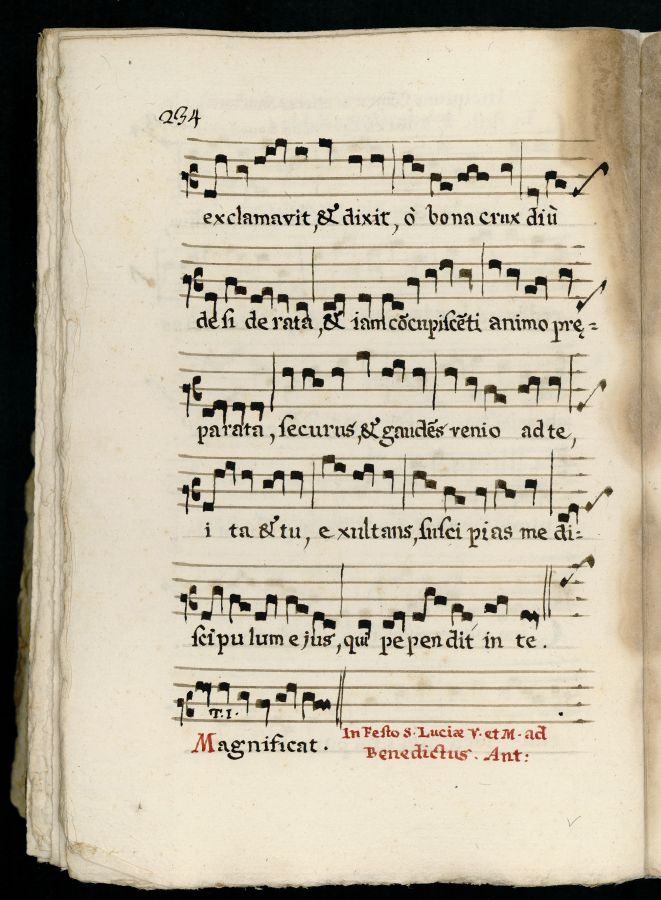 234
exclamavit, & dixit, ò bona crux diù
desi de rata, & iam cõcupiscẽti animo prę=
parata, securus, & gaudẽs venio ad te,
i ta & tu, e xultans, susci pias me di=
sci pu lum ejus, qui pe pen dit in te.
T. I.
Magnificat. In Festo S. Luciæ V. et M. ad
Benedictus. Ant: